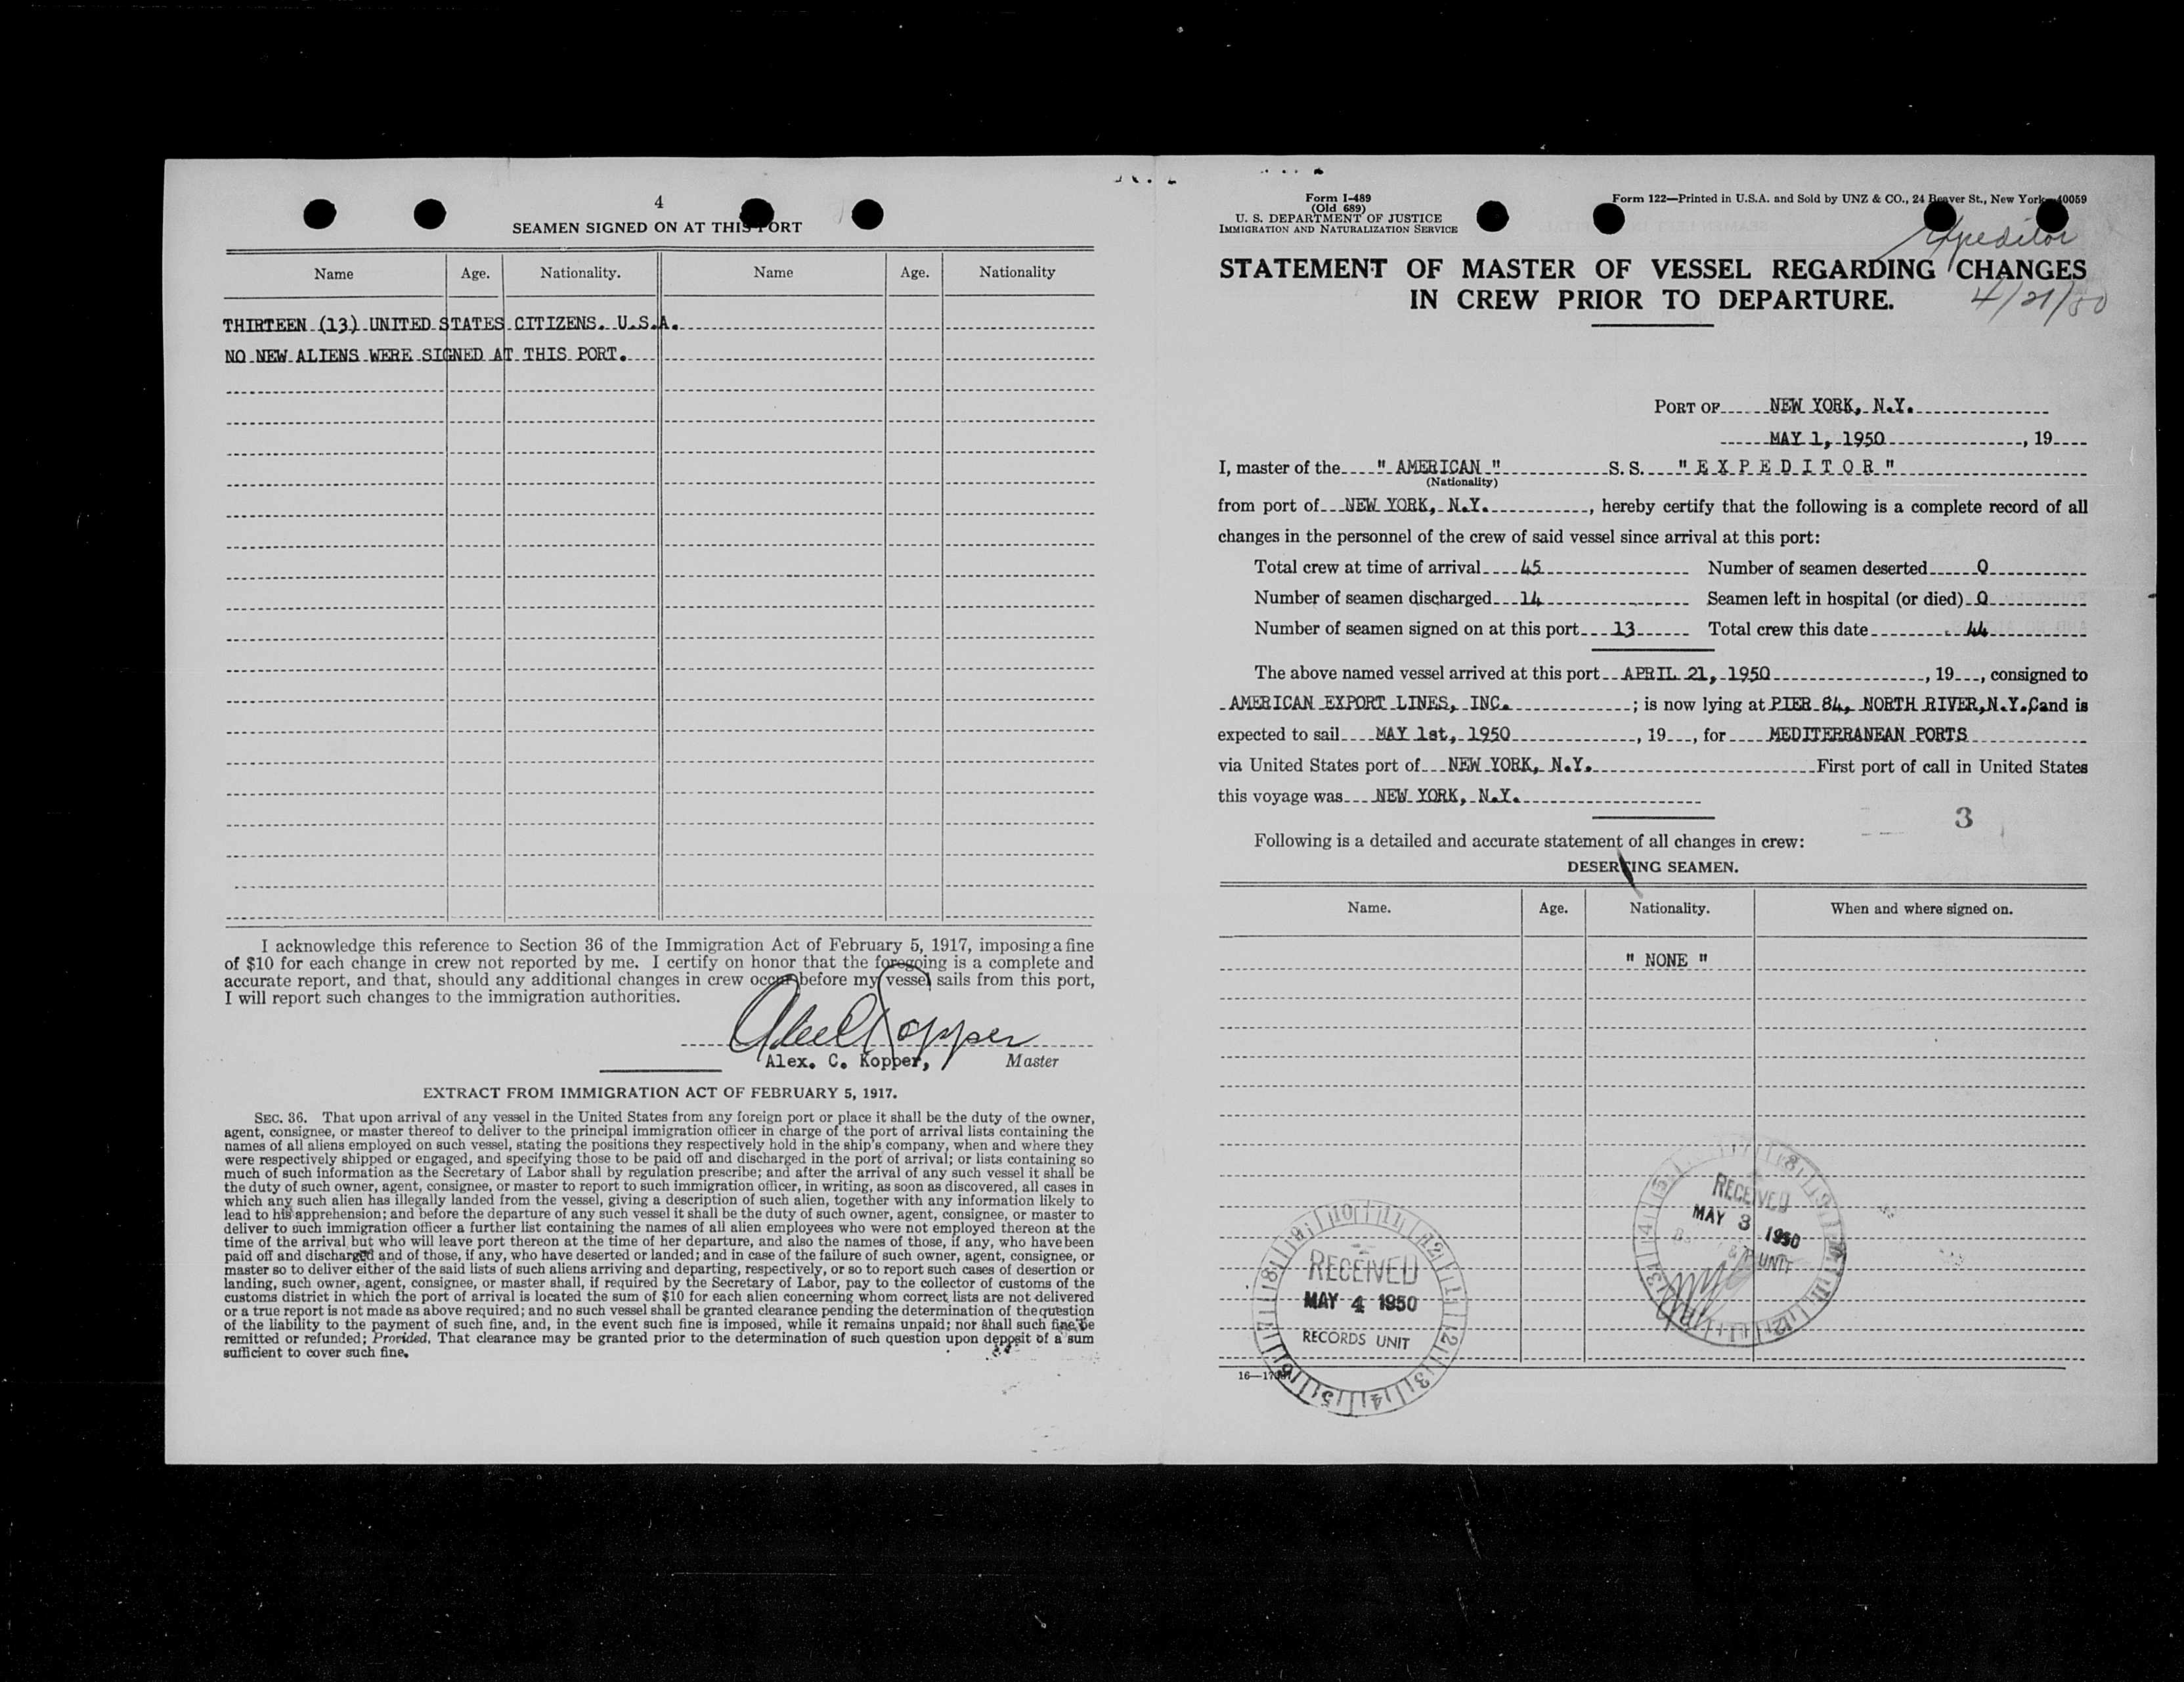 4
SEAMEN SIGNED ON AT THIS PORT
Name Age. Nationality. Name Age. Nationality
THIRTEEN (13) UNITED STATES CITIZENS. U.S.A.
NO NEW ALIENS WERE SIGNED AT THIS PORT.
I acknowledge this reference to Section 36 of the Immigration Act of February 5, 1917, imposing a fine
of $10 for each change in crew not reported by me. I certify on honor that the foregoing is a complete and
accurate report, and that, should any additional changes in crew occur before my vessel sails from this port,
I will report such changes to the immigration authorities.
Alex C Kopper
Alex. C. Kopper, Master
EXTRACT FROM IMMIGRATION ACT OF FEBRUARY 5, 1917.
SEC. 36. That upon arrival of any vessel in the United States from any foreign port or place it shall be the duty of the owner,
agent, consignee, or master thereof to deliver to the principal immigration officer in charge of the port of arrival lists containing the
names of all aliens employed on such vessel, stating the positions they respectively hold in the ship's company, when and where they
were respectively shipped or engaged, and specifying those to be paid off and discharged in the port of arrival; or lists containing so
much of such information as the Secretary of Labor shall by regulation prescribe; and after the arrival of any such vessel it shall be
the duty of such owner, agent, consignee, or master to report to such immigration officer, in writing, as soon as discovered, all cases in
which any such alien has illegally landed from the vessel, giving a description of such alien, together with any information likely to
lead to his apprehension; and before the departure of any such vessel it shall be the duty of such owner, agent, consignee, or master to
deliver to such immigration officer a further list containing the names of all alien employees who were not employed thereon at the
time of the arrival but who will leave port thereon at the time of her departure, and also the names of those, if any, who have been
paid off and discharged and of those, if any, who have deserted or landed; and in case of the failure of such owner, agent, consignee, or
master so to deliver either of the said lists of such aliens arriving and departing, respectively, or so to report such cases of desertion or
landing, such owner, agent, consignee, or master shall, if required by the Secretary of Labor, pay to the collector of customs of the
customs district in which the port of arrival is located the sum of $10 for each alien concerning whom correct lists are not delivered
or a true report is not made as above required; and no such vessel shall be granted clearance pending the determination of the question
of the liability to the payment of such fine, and, in the event such fine is imposed, while it remains unpaid; nor shall such fine be
remitted or refunded; Provided, That clearance may be granted prior to the determination of such question upon deposit of a sum
sufficient to cover such fine.
Form I-489
(Old 689)
U. S. DEPARTMENT OF JUSTICE
IMMIGRATION AND NATURALIZATION SERVICE
Form 122—Printed in U.S.A. and Sold by UNZ & CO., 24 Beaver St., New York—40059
Expeditor
STATEMENT OF MASTER OF VESSEL REGARDING CHANGES
IN CREW PRIOR TO DEPARTURE.
4/21/50
PORT OF NEW YORK, N.Y.
MAY 1, 1950, 19
I, master of the " AMERICAN " S. S. " E X P E D I T O R "
(Nationality)
from port of NEW YORK, N.Y., hereby certify that the following is a complete record of all
changes in the personnel of the crew of said vessel since arrival at this port:
Total crew at time of arrival 45 Number of seamen deserted 0
Number of seamen discharged 14 Seamen left in hospital (or died) 0
Number of seamen signed on at this port 13 Total crew this date 44
The above named vessel arrived at this port APRIL 21, 1950, 19, consigned to
AMERICAN EXPORT LINES, INC.; is now lying at PIER 84, NORTH RIVER, N.Y.C and is
expected to sail MAY 1st, 1950, 19, for MEDITERRANEAN PORTS
via United States port of NEW YORK, N.Y. First port of call in United States
this voyage was NEW YORK, N.Y.
3
Following is a detailed and accurate statement of all changes in crew:
DESERTING SEAMEN.
Name. Age. Nationality. When and where signed on.
" NONE "
RECEIVED
MAY 3 1950
& UNIT
RECEIVED
MAY 4 1950
RECORDS UNIT